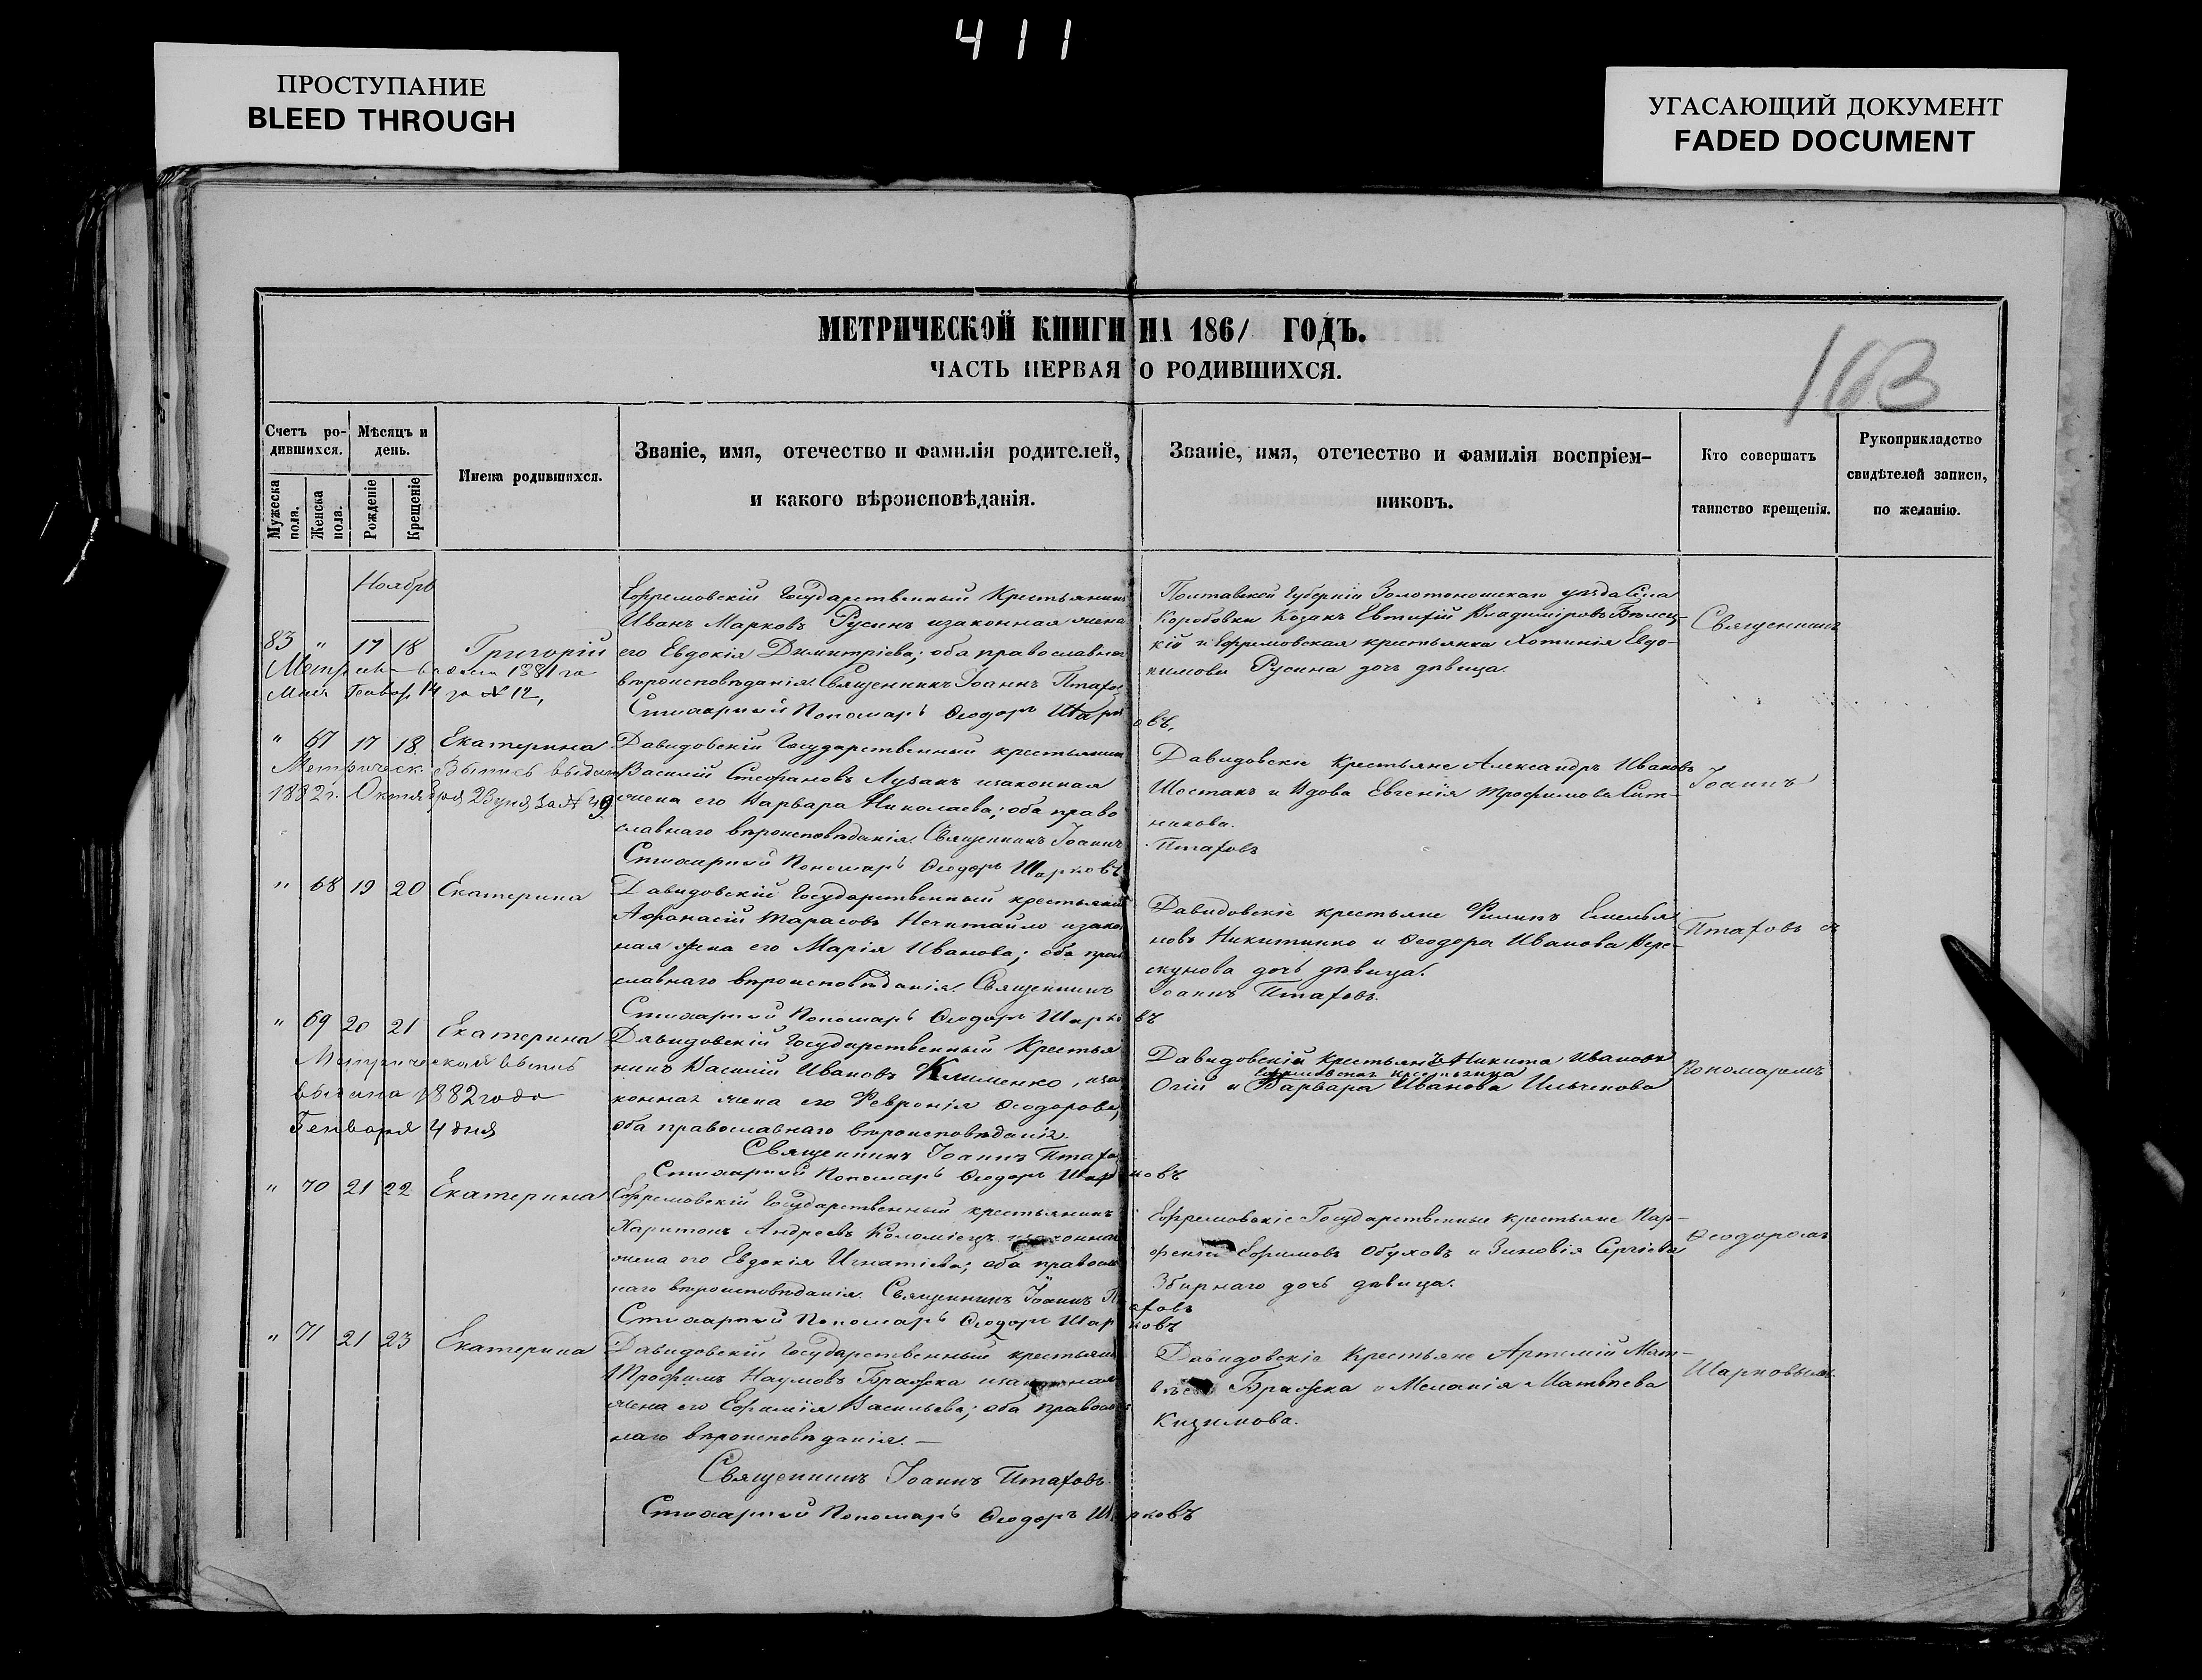 411
ПРОСТУПАНИЕ
BLEED THROUGH
УГАСАЮЩИЙ ДОКУМЕНТ
FADED DOCUMENT
МЕТРИЧЕСКОЙ КНИГИ НА 1861 ГОДЪ.
163
ЧАСТЬ ПЕРВАЯ О РОДИВШИХСЯ.
Счетъ ро-
дившихся.
Мужеска пола.
Женска пола.
Мѣсяцъ и
день.
Рожденіе
Крещеніе
Имена родившихся.
Званіе, имя, отечество и фамилія родителей,
и какого вѣроисповѣданія.
Званіе, имя, отечество и фамилія воспріем-
никовъ.
Кто совершатъ
таинство крещенія.
Рукоприкладство
свидѣтелей записи,
по желанію.
Ноябрь
83 " 17 18 Григорій
1881 го
14 за № 12,
Ефремовскій Государственный Крестьянинъ
Иванъ Марковъ Русинъ изаконная жена
его Евдокія Димитріева; оба православна
вѣроисповѣданія. Священникъ Іоаннъ Птахо
Стихарный Пономарь Ѳеодоръ Шарк
овъ,
Полтавской Губерніи Золотоношскаго уѣзда Села
Коробовки Козакъ Евтифій Владиміровъ Бѣлец-
кій и Ефремовская крестьянка Хотинія Евдо-
кимова Русина дочь дѣвица.
Священникъ
" 67 17 18. Екатерина
Метрическ. Выпись выдана
1882 г. Октября 23 дня за № 49
Давидовскій Государственный крестьянин
Василій Стефановъ Лузанъ изаконная
жена его Варвара Николаева; оба право
славнаго вѣроисповѣданія. Священникъ Іоаннъ
Стихарный Пономарь Ѳеодоръ Шарковъ
Давидовскіе Крестьяне Александръ Ивановъ
Шостакъ и Вдова Евгенія Трофимова Сит-
никова.
Птаховъ
Іоаннъ
" 68 19 20 Екатерина
Давидовскій Государственный крестьянин
Афанасій Тарасовъ Нечитайло изако
ная жена его Марія Иванова; оба прав
славнаго вѣроисповѣданія. Священникъ
Стихарный Пономарь Ѳеодоръ Шарко
въ
Давидовскіе крестьяне Филипъ Емелья
новъ Никитинко и Ѳеодора Иванова Пере-
скунова дочь дѣвица.
Іоаннъ Птаховъ.
Птаховъ съ
" 69 20 21 Екатерина
Метрическая выпись
выдана 1882 года
Генваря 4 дня
Давидовскій Государственный Крестья
нинъ Василій Ивановъ Клименко, иза
конная жена его Февронія Ѳеодорова,
оба православнаго вѣроисповѣданія.
Священникъ Іоаннъ Птахо
Стихарный Пономарь Ѳеодоръ Шар
ковъ
Давидовскій Крестьянъ Никита Ивановъ
Огій и Варвара Иванова Ильченкова
Пономаремъ
" 70 21 22 Екатерина
Ефремовскій Государственный крестьянинъ
Харитонъ Андреевъ Коломіецъ изаконная
жена его Евдокія Игнатіева; оба правосла
наго вѣроисповѣданія. Священникъ Іоаннъ П
таховъ
Стихарный Пономарь Ѳеодоръ Шар
ковъ
Ефремовскіе Государственные крестьяне Пар-
феній Ефимовъ Обуховъ и Зиновія Сергіева
Збирнаго дочь дѣвица.
Ѳеодоромъ
" 71 21 23 Екатерина
Давидовскій Государственный крестьянин
Трофимъ Наумовъ Бражка изаконная
жена его Ефимія Васильева; оба правосл
наго вѣроисповѣданія. —
Священникъ Іоаннъ Птаховъ.
Стихарный Пономарь Ѳеодоръ Шарковъ
Давидовскіе Крестьяне Артемій Мат-
вѣевъ Бражка и Меланія Матвѣева
Кизимова.
Шарковымъ.